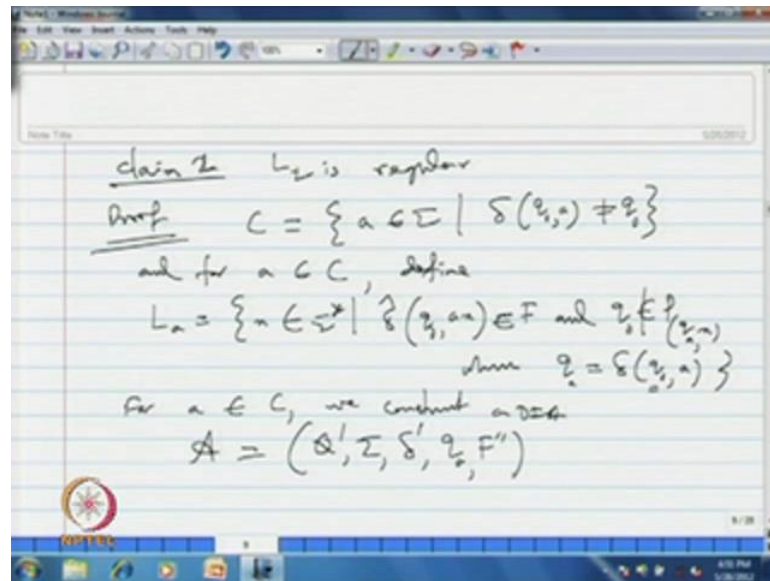 Note1 - Windows Journal
File Edit View Insert Actions Tools Help
Note Title
5/28/2012
claim 2 L₂ is regular
Proof C = { a ∈ Σ | δ(q₀, a) ≠ q₀ }
and for a ∈ C, define
Lₐ = { x ∈ Σ* | δ̂(q₀, ax) ∈ F and q₀ ∉ P(qₐ, x)
where qₐ = δ(q₀, a) }
For a ∈ C, we construct a DFA
A = (Q', Σ, δ', qₐ, F'')
NPTEL
9